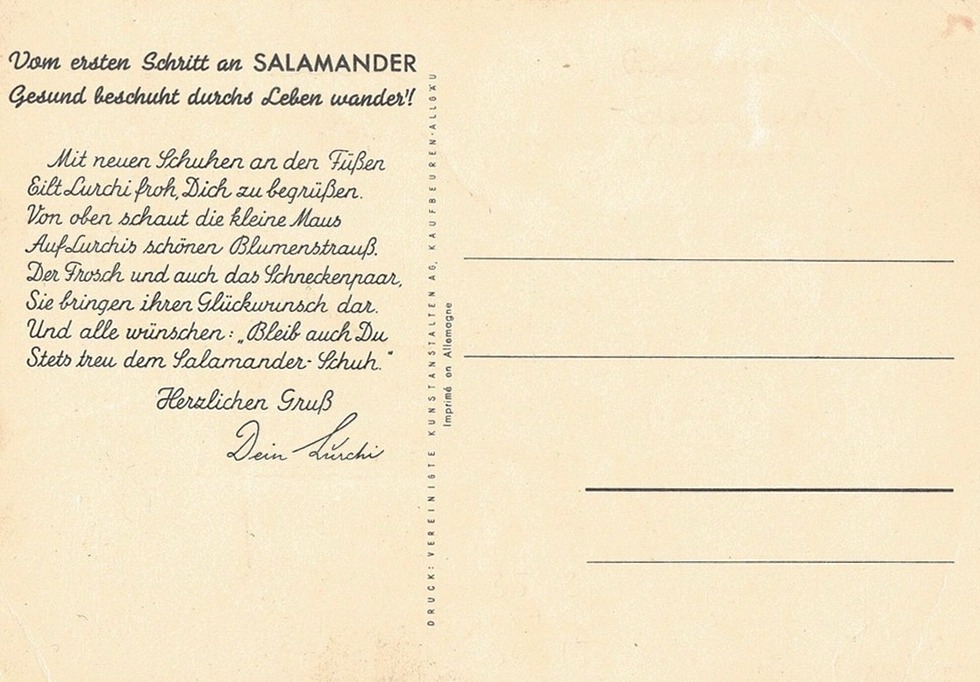 Vom ersten Schritt an SALAMANDER
Gesund beschuht durchs Leben wander'!
Mit neuen Schuhen an den Füßen
Eilt Lurchi froh, Dich zu begrüßen.
Von oben schaut die kleine Maus
Auf Lurchis schönen Blumenstrauß.
Der Frosch und auch das Schneckenpaar,
Sie bringen ihren Glückwunsch dar.
Und alle wünschen: „Bleib auch Du
Stets treu dem Salamander-Schuh."
Herzlichen Gruß
Dein Lurchi
DRUCK: VEREINIGTE KUNSTANSTALTEN AG, KAUFBEUREN-ALLGÄU
Imprimé en Allemagne